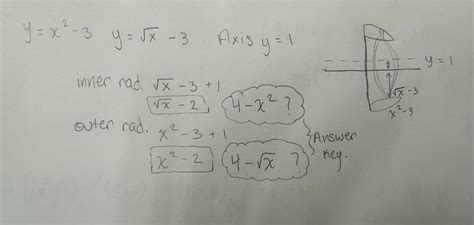 y = x² - 3   y = √x - 3   Axis y = 1
inner rad. √x - 3 + 1
√x - 2   4 - x² ?
outer rad. x² - 3 + 1
x² - 2   4 - √x ?
Answer
key..
y = 1
√x - 3
x² - 3